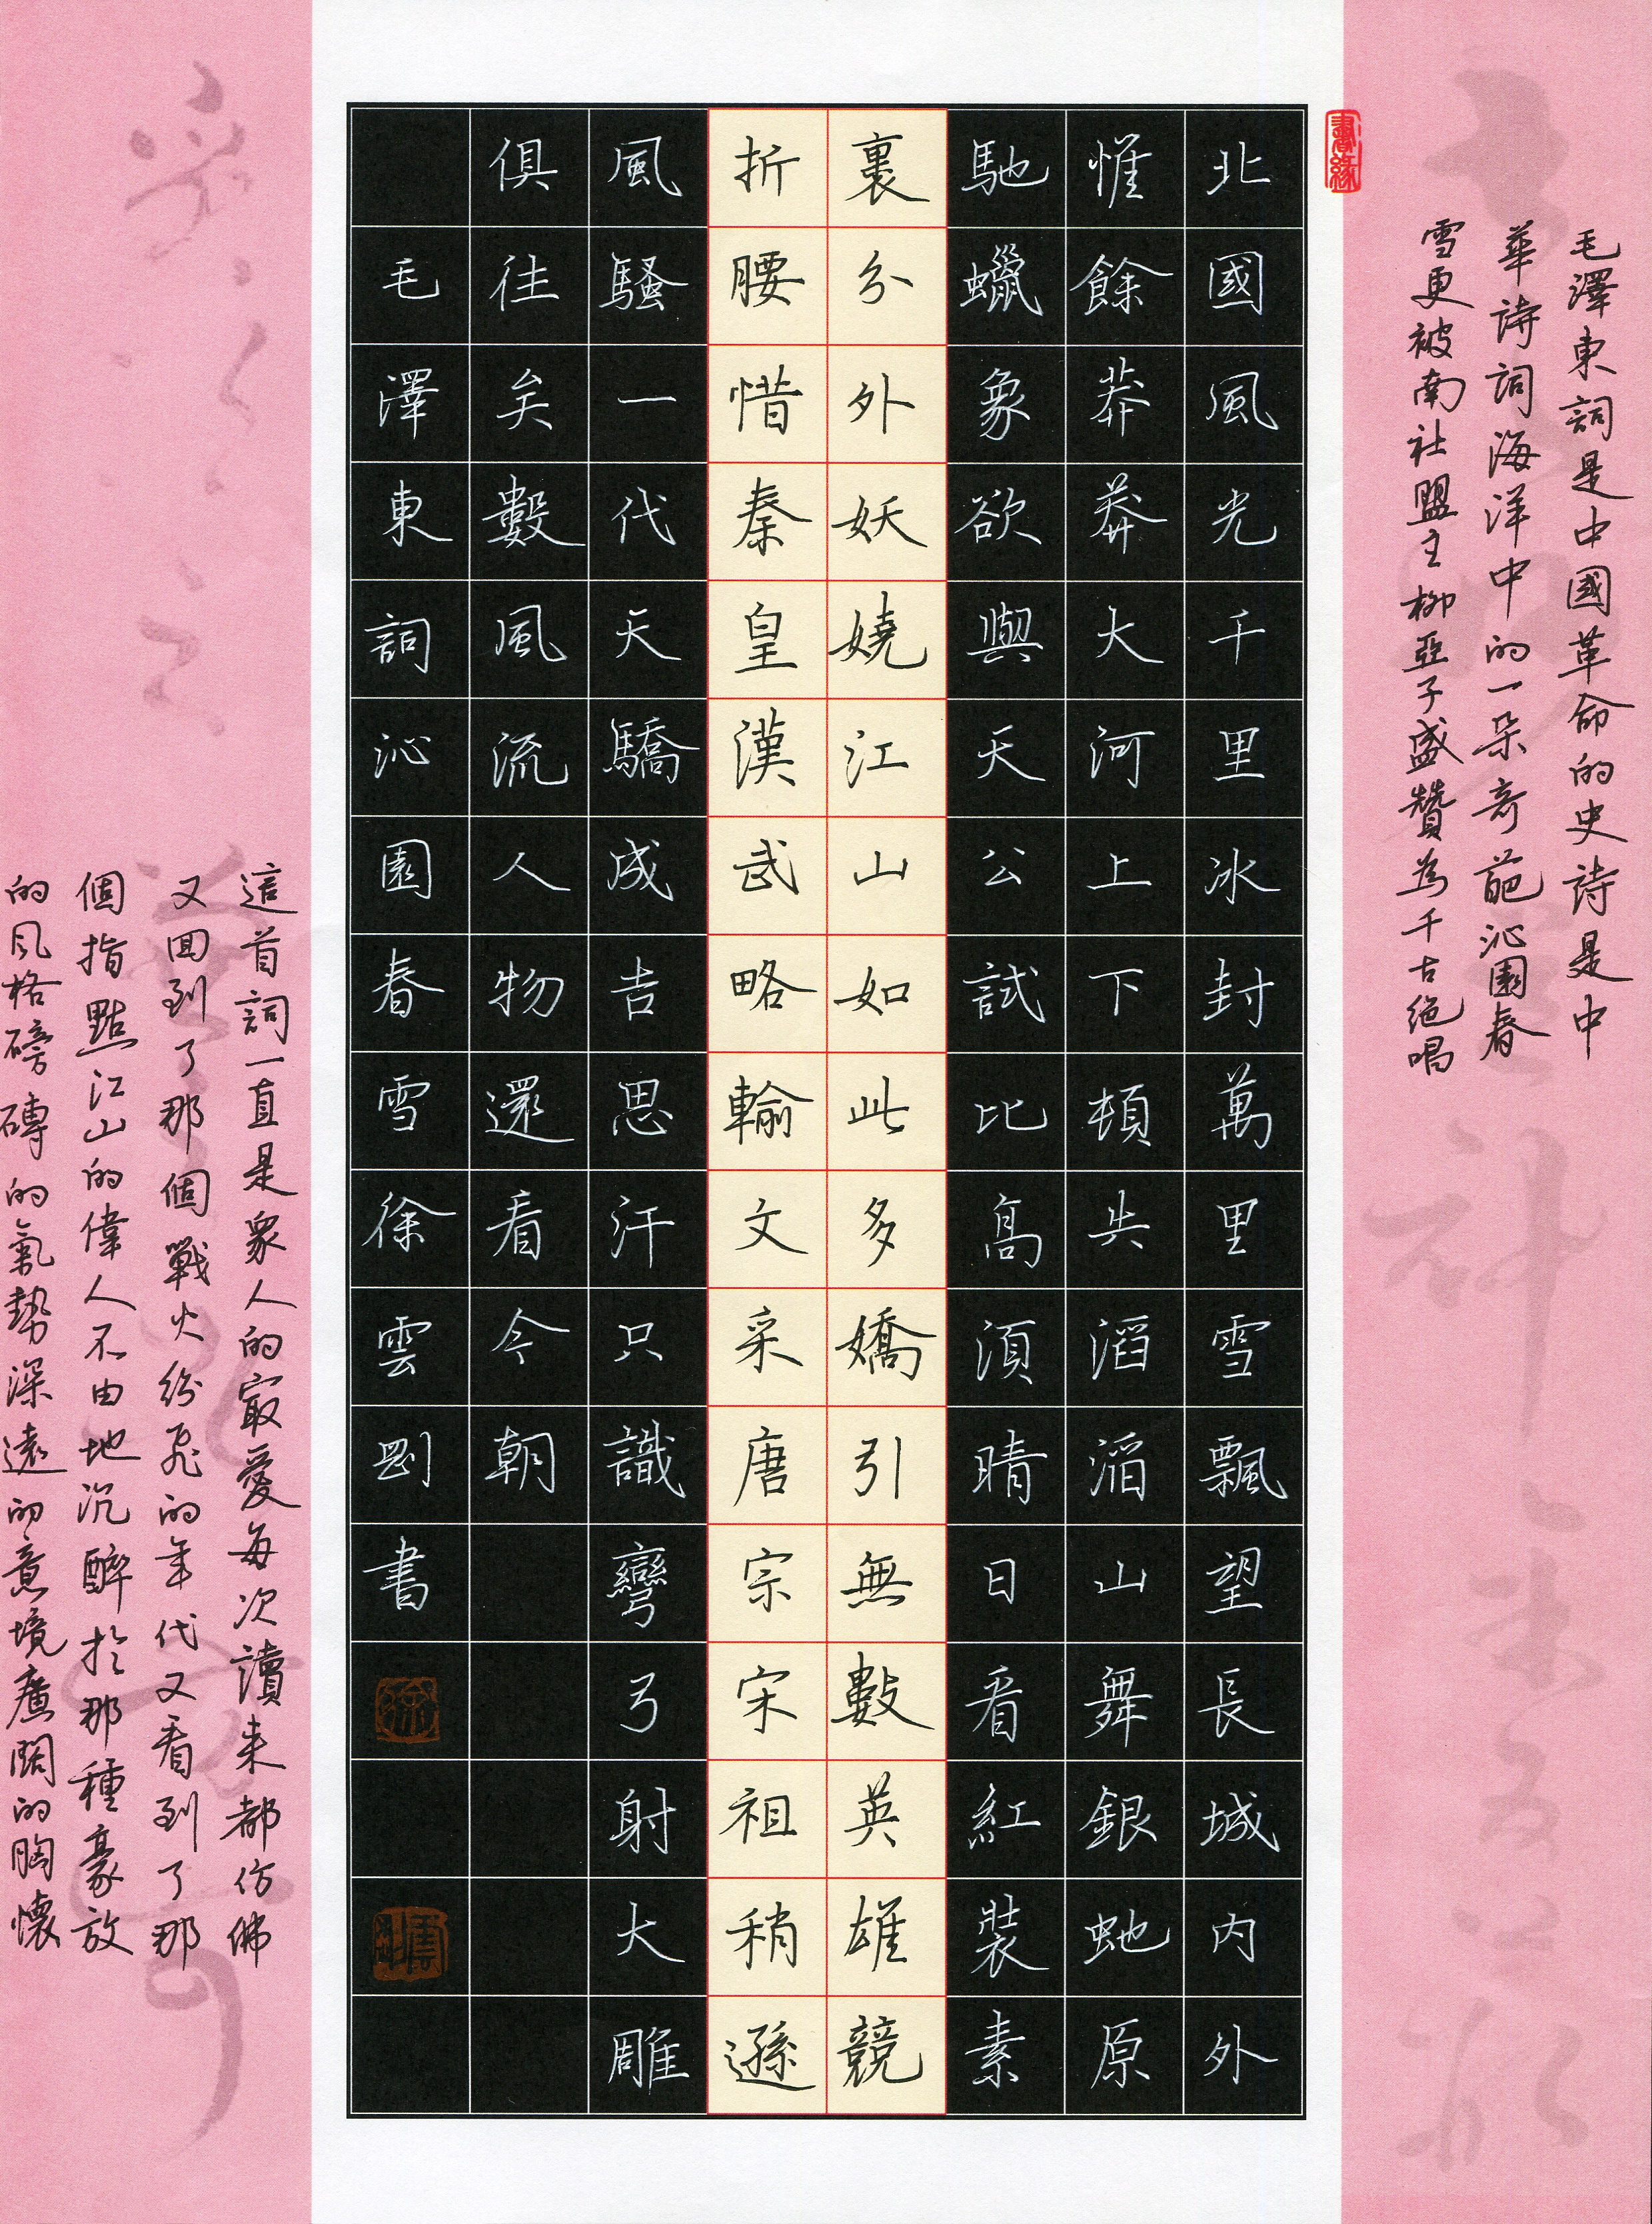 毛澤東詞是中國革命的史詩是中
華詩詞海洋中的一朵奇葩沁園春
雪更被南社盟主柳亞子盛贊為千古絕唱
書緣
北國風光千里冰封萬里雪飄望長城内外
惟餘莽莽大河上下頓失滔滔山舞銀虵原
馳蠟象欲與天公試比高須晴日看紅裝素
裹分外妖嬈江山如此多嬌引無數英雄競
折腰惜秦皇漢武略輸文采唐宗宋祖稍遜
風騷一代天驕成吉思汗只識彎弓射大雕
俱往矣數風流人物還看今朝
毛澤東詞沁園春雪徐雲剛書
這首詞一直是衆人的最愛每次讀来都仿佛
又回到了那個戰火紛飛的年代又看到了那
個指點江山的偉人不由地沉醉於那種豪放
的风格磅礴的氣勢深遠的意境廣闊的胸懷